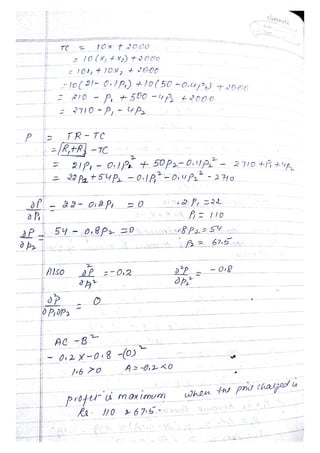 TC = 10x + 2000
= 10(x₁ + x₂) + 2000
= 10x₁ + 10x₂ + 2000
= 10(21 - 0.1P₁) + 10(50 - 0.4P₂) + 2000
= 210 - P₁ + 500 - 4P₂ + 2000
= 2710 - P₁ - 4P₂
P = TR - TC
= [R₁ + R₂] - TC
= 21P₁ - 0.1P₁² + 50P₂ - 0.4P₂² - 2710 + P₁ + 4P₂
= 22P₁ + 54P₂ - 0.1P₁² - 0.4P₂² - 2710
∂P/∂P₁ = 22 - 0.2P₁ = 0 .2P₁ = 22
P₁ = 110
∂P/∂P₂ = 54 - 0.8P₂ = 0 .8P₂ = 54
P₂ = 67.5
Also ∂²P/∂P₁² = -0.2 ∂²P/∂P₂² = -0.8
∂²P/∂P₁∂P₂ = 0
AC - B²
-0.2 x -0.8 - (0)²
1.6 > 0 A = -0.2 < 0
profit is maximum when the price charged is
Rs. 110 & 67.5.